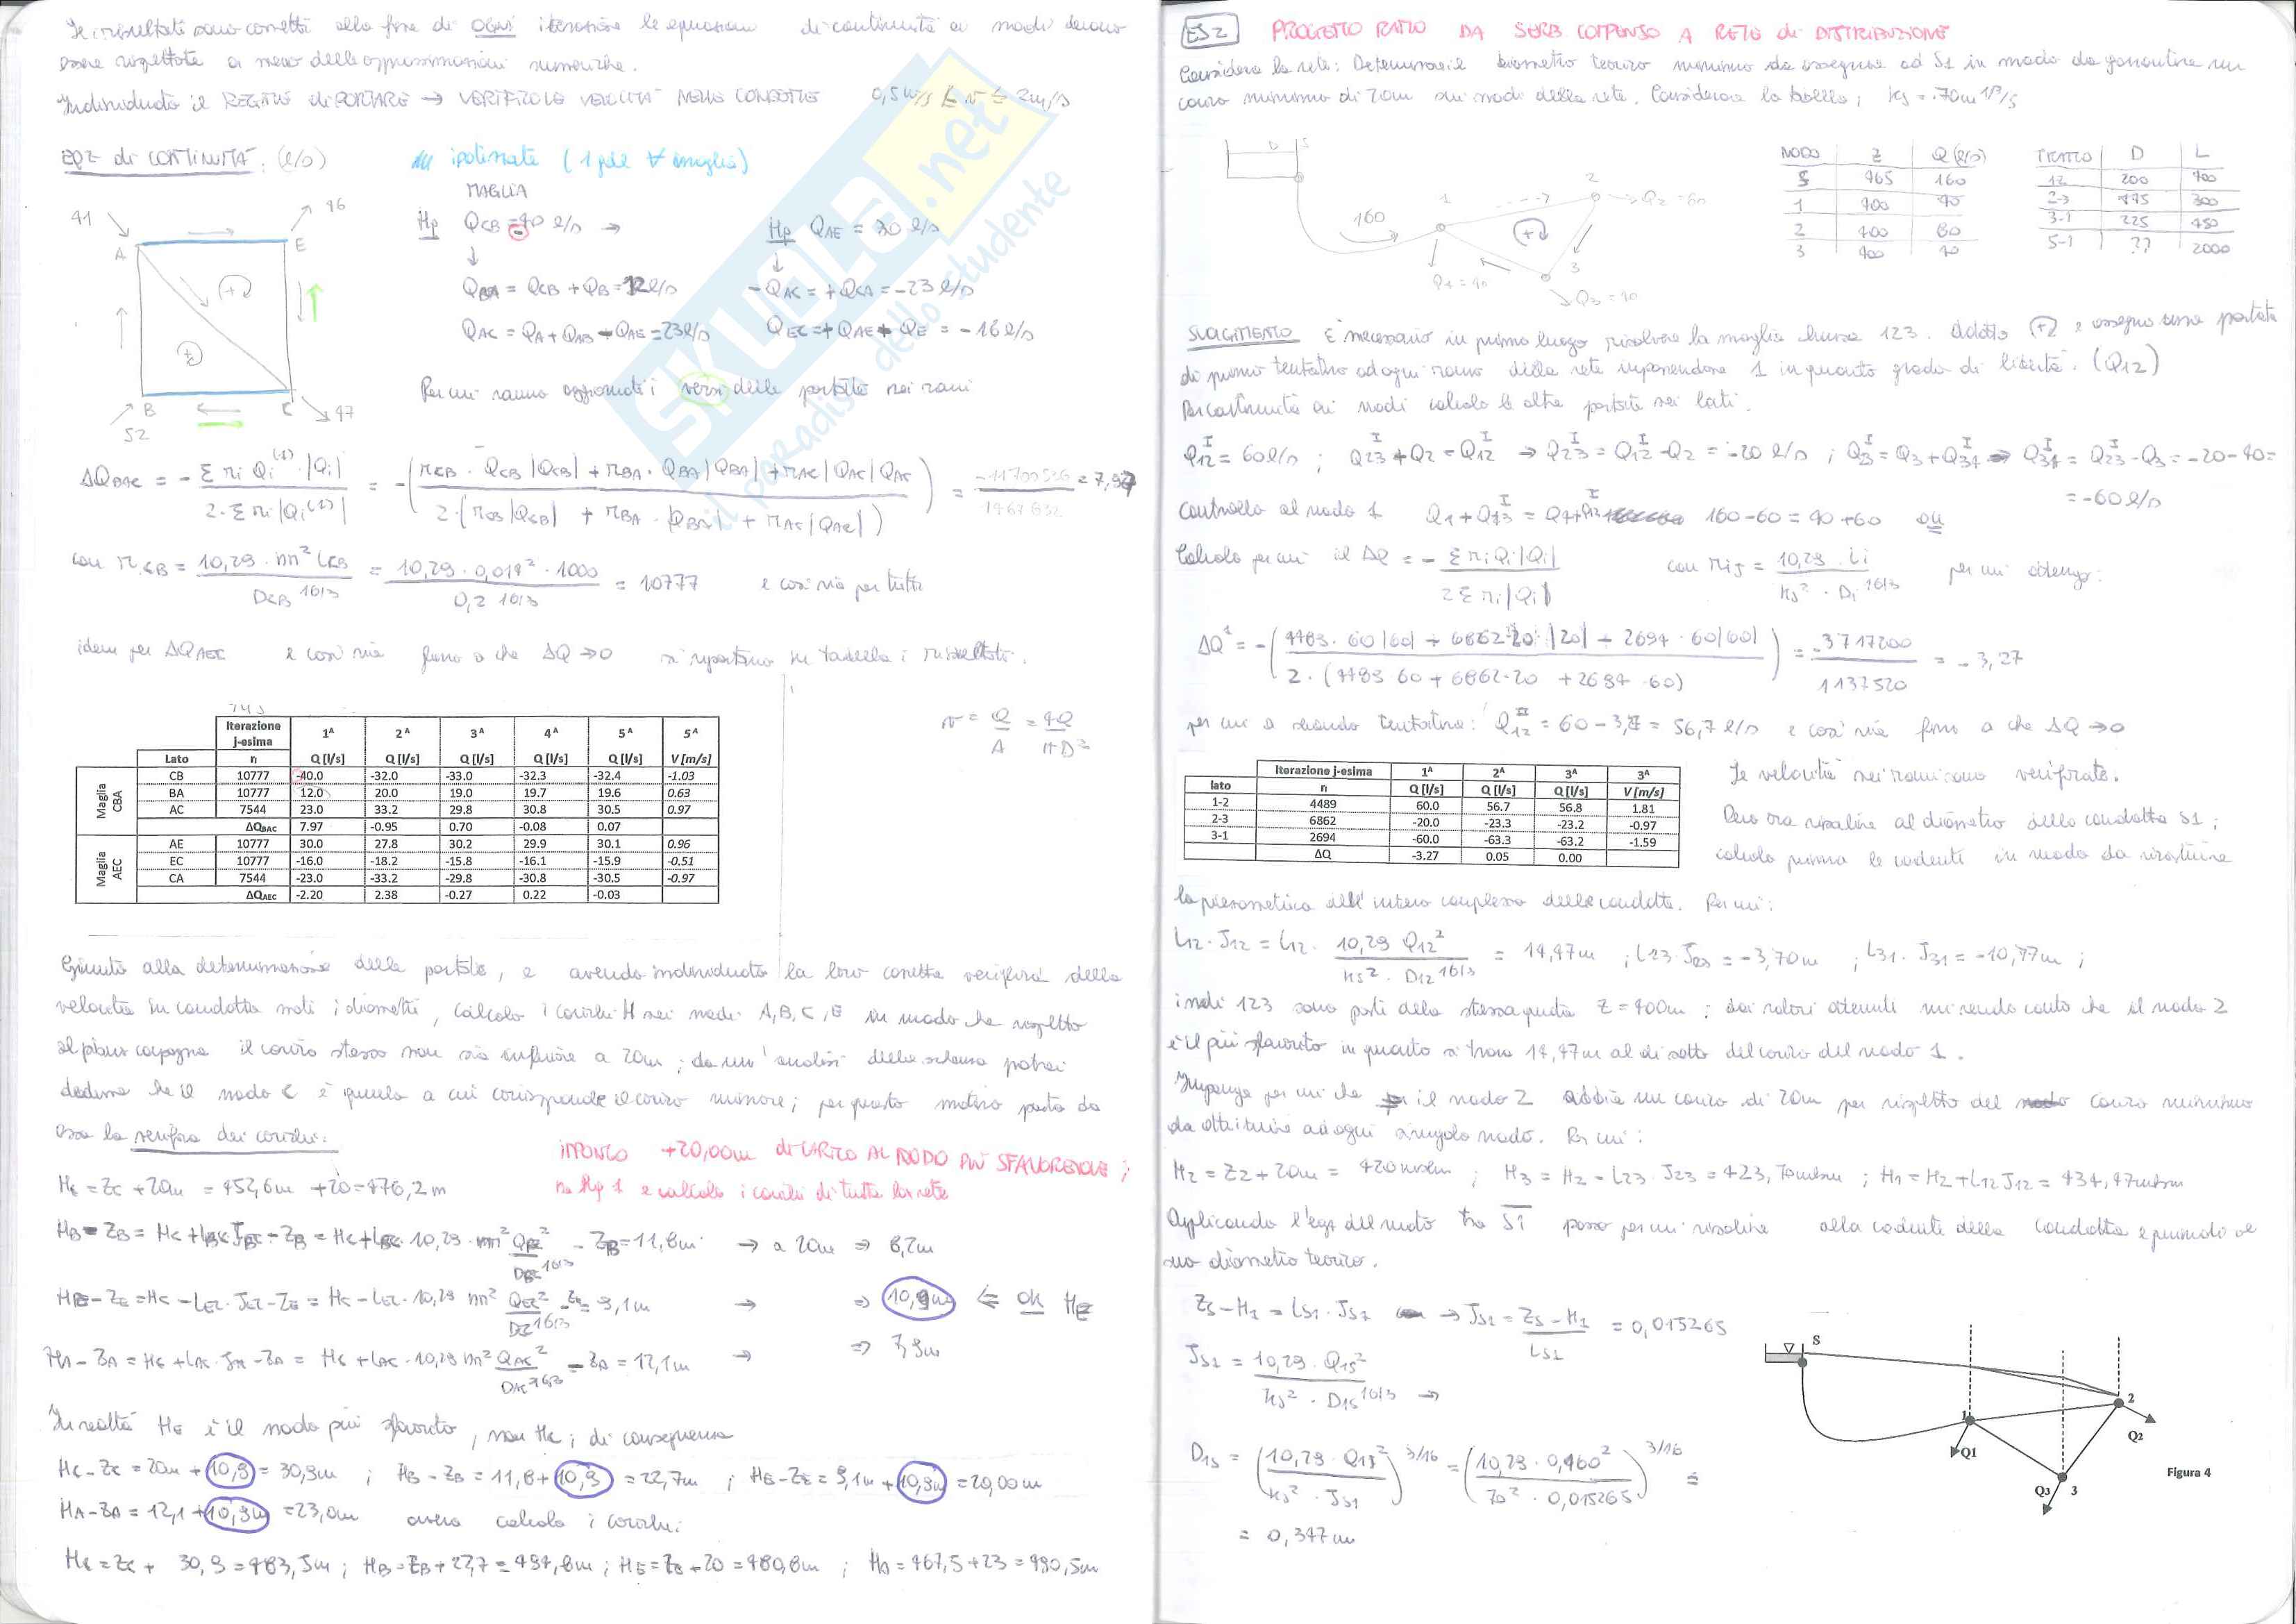 Se i risultati sono corretti alla fine di OGNI iterazione le equazioni di continuità ai nodi devono
essere rispettate a meno delle approssimazioni numeriche.
Individuato il REGIME di PORTATE → VERIFICO LE VELOCITÀ NELLE CONDOTTE 0,5 m/s ≤ v ≤ 2m/s
EQZ di CONTINUITÀ: (l/s)
ipotizzate (1 per ∀ maglia)
MAGLIA
41
46
A
E
B
C
52
47
Hp QCB = -40 l/s →
Hp QAE = 30 l/s
QBA = QCB + QB = 12 l/s
-QAC = +QCA = -23 l/s
QAC = QA + QAB - QAE = 23 l/s
QEC = + QAE + QE = -16 l/s
Per cui vanno aggiornati i versi delle portate nei rami
ΔQBAC = - Σ ri Qi |Qi| / 2·Σ ri |Qi| = -( rCB · QCB |QCB| + rBA · QBA |QBA| + rAC |QAC| QAC / 2·(rCB |QCB| + rBA · |QBA| + rAC |QAC|) ) = = 7,97
con rCB = 10,29 · m² LCB / DCB 16/3 = 10,29 · 0,014² · 1000 / 0,2 16/3 = 10777 e così via per tutti
idem per ΔQAEC e così via fino a che ΔQ → 0 si riportano in tabella i risultati.
Iterazione j-esima 1ᴬ 2ᴬ 3ᴬ 4ᴬ 5ᴬ 5ᴬ
Lato rᵢ Q [l/s] Q [l/s] Q [l/s] Q [l/s] Q [l/s] V [m/s]
Maglia CBA
CB 10777 -40.0 -32.0 -33.0 -32.3 -32.4 -1.03
BA 10777 12.0 20.0 19.0 19.7 19.6 0.63
AC 7544 23.0 33.2 29.8 30.8 30.5 0.97
ΔQBAC 7.97 -0.95 0.70 -0.08 0.07
Maglia AEC
AE 10777 30.0 27.8 30.2 29.9 30.1 0.96
EC 10777 -16.0 -18.2 -15.8 -16.1 -15.9 -0.51
CA 7544 -23.0 -33.2 -29.8 -30.8 -30.5 -0.97
ΔQAEC -2.20 2.38 -0.27 0.22 -0.03
v = Q/A = 4Q/πD²
Giunto alla determinazione delle portate, e avendo individuato la loro corretta verifica delle
velocità in condotta noti i diametri, calcolo i carichi H nei nodi A, B, C, E in modo che rispetto
al piano campagna il carico stesso non sia inferiore a 20m; da un'analisi dello schema potrei
dedurre che il nodo C è quello a cui corrisponde il carico minore; per questo motivo parto da
esso la verifica dei carichi:
IMPONGO +20,00m di CARICO AL NODO PIÙ SFAVOREVOLE;
e calcolo i carichi di tutta la rete
HC = ZC + 20m = 452,6m + 20 = 476,2 m
HB - ZB = HC + LBC JBC - ZB = HC + LBC · 10,29 m² QBC² / DBC 16/3 - ZB = 11,8m → a 20m ⇒ 8,2m
HE - ZE = HC - LEC · JEC - ZE = HC - LEC · 10,29 m² QEC² / DEC 16/3 - ZE = 9,1m → ⇒ 10,9m ⇐ OK HE
HA - ZA = HC + LAC · JAC - ZA = HC + LAC · 10,29 m² QAC² / DAC 16/3 - ZA = 12,1m → ⇒ 7,9m
In realtà HE è il nodo più sfavorito, non HC; di conseguenza
HC - ZC = 20m + 10,9 = 30,9m ; HB - ZB = 11,8 + 10,9 = 22,7m ; HE - ZE = 9,1m + 10,9m = 20,00m
HA - ZA = 12,1 + 10,9m = 23,0m ovvero calcolo i carichi:
HC = ZC + 30,9 = 483,5m ; HB = ZB + 22,7 = 484,8m ; HE = ZE + 20 = 480,8m ; HA = 467,5 + 23 = 490,5m
ES 2 PROGETTO RAMO DA SERB COMPENSO A RETE di DISTRIBUZIONE
Considero la rete: Determinare il diametro teorico minimo da assegnare ad S1 in modo da garantire un
carico minimo di 20m sui nodi della rete. Considerare la tabella; ks = 70m 1/3/s
S
160
1
2
3
Q2 = 60
Q1 = 40
Q3 = 40
NODO Z Q (l/s)
S 465 160
1 400 40
2 400 80
3 400 40
TRATTO D L
12 200 400
2-3 175 300
3-1 225 450
S-1 ?? 2000
SVOLGIMENTO È necessario in primo luogo risolvere la maglia chiusa 123. Adotto (+) e assegno una portata
di primo tentativo ad ogni ramo della rete imponendone 1 in quanto grado di libertà. (Q12)
Per continuità ai nodi calcolo le altre portate nei lati.
Q12 = 60 l/s ; Q23 + Q2 = Q12 → Q23 = Q12 - Q2 = -20 l/s ; Q23 = Q3 + Q31 → Q31 = Q23 - Q3 = -20 - 40 =
= -60 l/s
Controllo al nodo 1 160 - 60 = 40 + 60 OK
Calcolo per cui il ΔQ = - Σ ri Qi |Qi| / 2 Σ ri |Qi| con rij = 10,29 · Li / ks² · Di 16/3 per cui ottengo:
ΔQ¹ = -( 4483 · 60 |60| - 6862 · 20 · |20| - 2694 · 60 |60| / 2 · (4483 60 + 6862 · 20 + 2694 · 60) ) = -3717200 / 1137520 = -3,27
per cui a secondo tentativo: Q12 = 60 - 3,3 = 56,7 l/s e così via fino a che ΔQ → 0
Iterazione j-esima 1ᴬ 2ᴬ 3ᴬ 3ᴬ
lato rᵢ Q [l/s] Q [l/s] Q [l/s] V [m/s]
1-2 4489 60.0 56.7 56.8 1.81
2-3 6862 -20.0 -23.3 -23.2 -0.97
3-1 2694 -60.0 -63.3 -63.2 -1.59
ΔQ -3.27 0.05 0.00
Le velocità nei rami sono verificate.
Devo ora risalire al diametro della condotta S1;
calcolo prima le cadenti in modo da ricostruire
la piezometrica dell'intero complesso delle condotte. Per cui:
L12 · J12 = L12 · 10,29 Q12² / ks² · D12 16/3 = 14,47m ; L23 · J23 = -3,70m ; L31 · J31 = -10,77m ;
i nodi 123 sono posti della stessa quota Z = 400m ; dai valori ottenuti mi rendo conto che il nodo 2
è il più sfavorito in quanto si trova 14,47m al di sotto del carico del nodo 1.
Impongo per cui che il nodo 2 abbia un carico di 20m per rispetto del carico minimo
da attribuire ad ogni singolo nodo. Per cui:
H2 = Z2 + 20m = 420m ; H3 = H2 - L23 · J23 = 423,70m ; H1 = H2 + L12 J12 = 434,47m
Applicando l'eqz del moto tra S1 posso per cui risalire alla cadente della condotta e quindi al
suo diametro teorico.
ZS - H1 = LS1 · JS1 → JS1 = ZS - H1 / LS1 = 0,015265
JS1 = 10,29 · Q1S² / ks² · D1S 16/3 →
D1S = ( 10,29 · Q1S² / ks² · JS1 ) 3/16 = ( 10,29 · 0,160² / 70² · 0,015265 ) 3/16 =
= 0,347m
S
1
2
Q1
Q2
Q3 3
Figura 4
SKUOLA.net
il paradiso dello studente